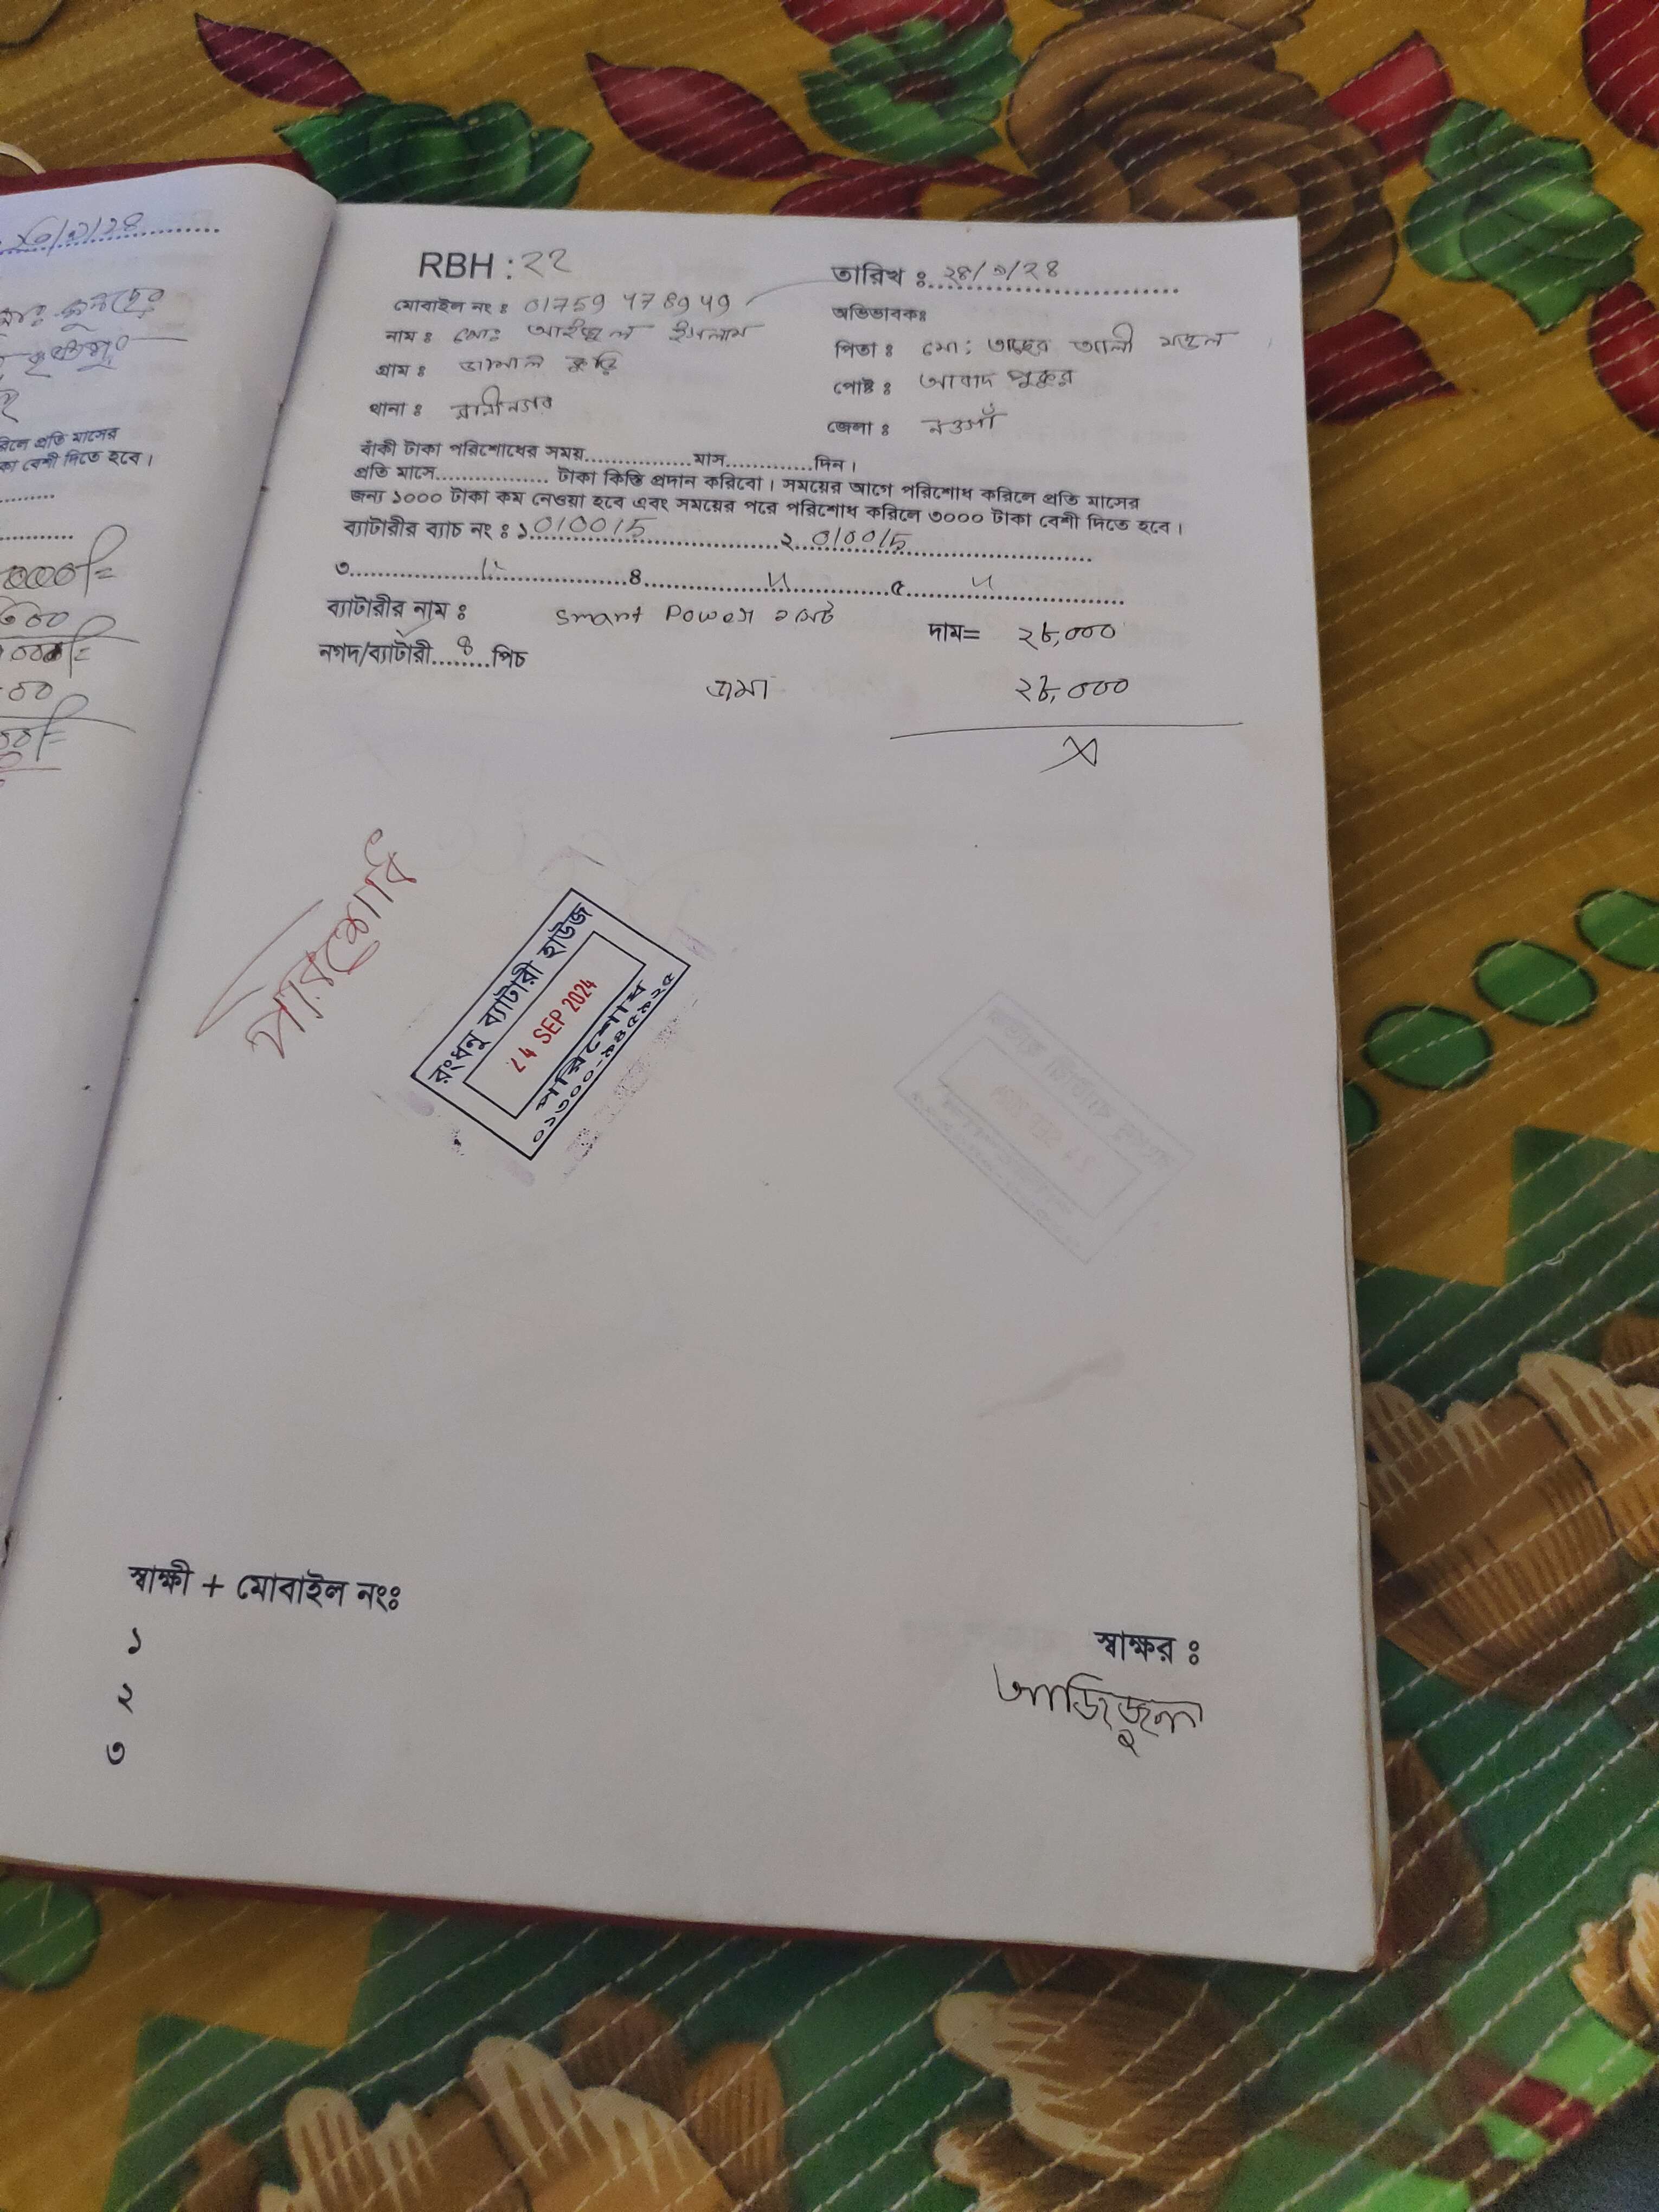 ২৬/৯/২৪
রিলে প্রতি মাসের
কা বেশী দিতে হবে।
RBH : ২২
তারিখ ঃ ২৪/৯/২৪
মোবাইল নং ঃ 01759 478949
অভিভাবকঃ
নাম ঃ মোঃ আইজুল ইসলাম
পিতা ঃ মো: তাছের আলী মন্ডল
গ্রাম ঃ ডামাল কুড়ি
পোষ্ট ঃ আবাদ পুকুর
থানা ঃ রানীনগর
জেলা ঃ নওগাঁ
বাঁকী টাকা পরিশোধের সময়................মাস.............দিন।
প্রতি মাসে................. টাকা কিস্তি প্রদান করিবো। সময়ের আগে পরিশোধ করিলে প্রতি মাসের
জন্য ১০০০ টাকা কম নেওয়া হবে এবং সময়ের পরে পরিশোধ করিলে ৩০০০ টাকা বেশী দিতে হবে।
ব্যাটারীর ব্যাচ নং ঃ ১. 010015 ২. 010015
৩. 〃 ৪. 〃 ৫. 〃
ব্যাটারীর নাম ঃ Smart Power
দাম= ২৮,০০০
নগদ/ব্যাটারী....৪....পিচ
জমা ২৮,০০০
X
পরিশোধ
রংধনু ব্যাটারী হাউজ
24 SEP 2024
পরিশোধ
০১৩০০-৯৪৫৯২৫
স্বাক্ষী + মোবাইল নংঃ
১
২
৩
স্বাক্ষর ঃ
আজিজুল